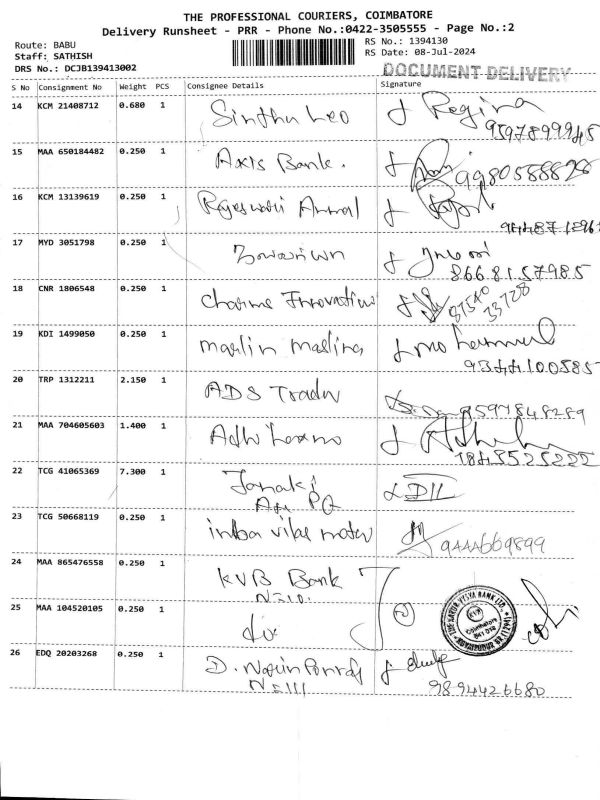 THE PROFESSIONAL COURIERS, COIMBATORE
Delivery Runsheet - PRR - Phone No.:0422-3505555 - Page No.:2
Route: BABU
RS No.: 1394130
Staff: SATHISH
RS Date: 08-Jul-2024
DRS No.: DCJB139413002
DOCUMENT DELIVERY
S No Consignment No Weight PCS Consignee Details Signature
14 KCM 21408712 0.680 1 Sinthu Leo Regina
9597899945
15 MAA 650184482 0.250 1 Axis Bank.
9980588828
16 KCM 13139619 0.250 1 Rajeswari Ammal
17 MYD 3051798 0.250 1
8668157985
18 CNR 1806548 0.250 1 Charms Innovation 87540
33728
19 KDI 1499050 0.250 1 marlin Mohammed
9344100585
20 TRP 1312211 2.150 1 ADS Trader 8597848289
21 MAA 704605603 1.400 1
1843525222
22 TCG 41065369 7.300 1 Janaki
23 TCG 50668119 0.250 1 inba vilas motor 9444669899
24 MAA 865476558 0.250 1 KVB Bank
25 MAA 104520105 0.250 1 do
26 EDQ 20203268 0.250 1 D.
9894426680